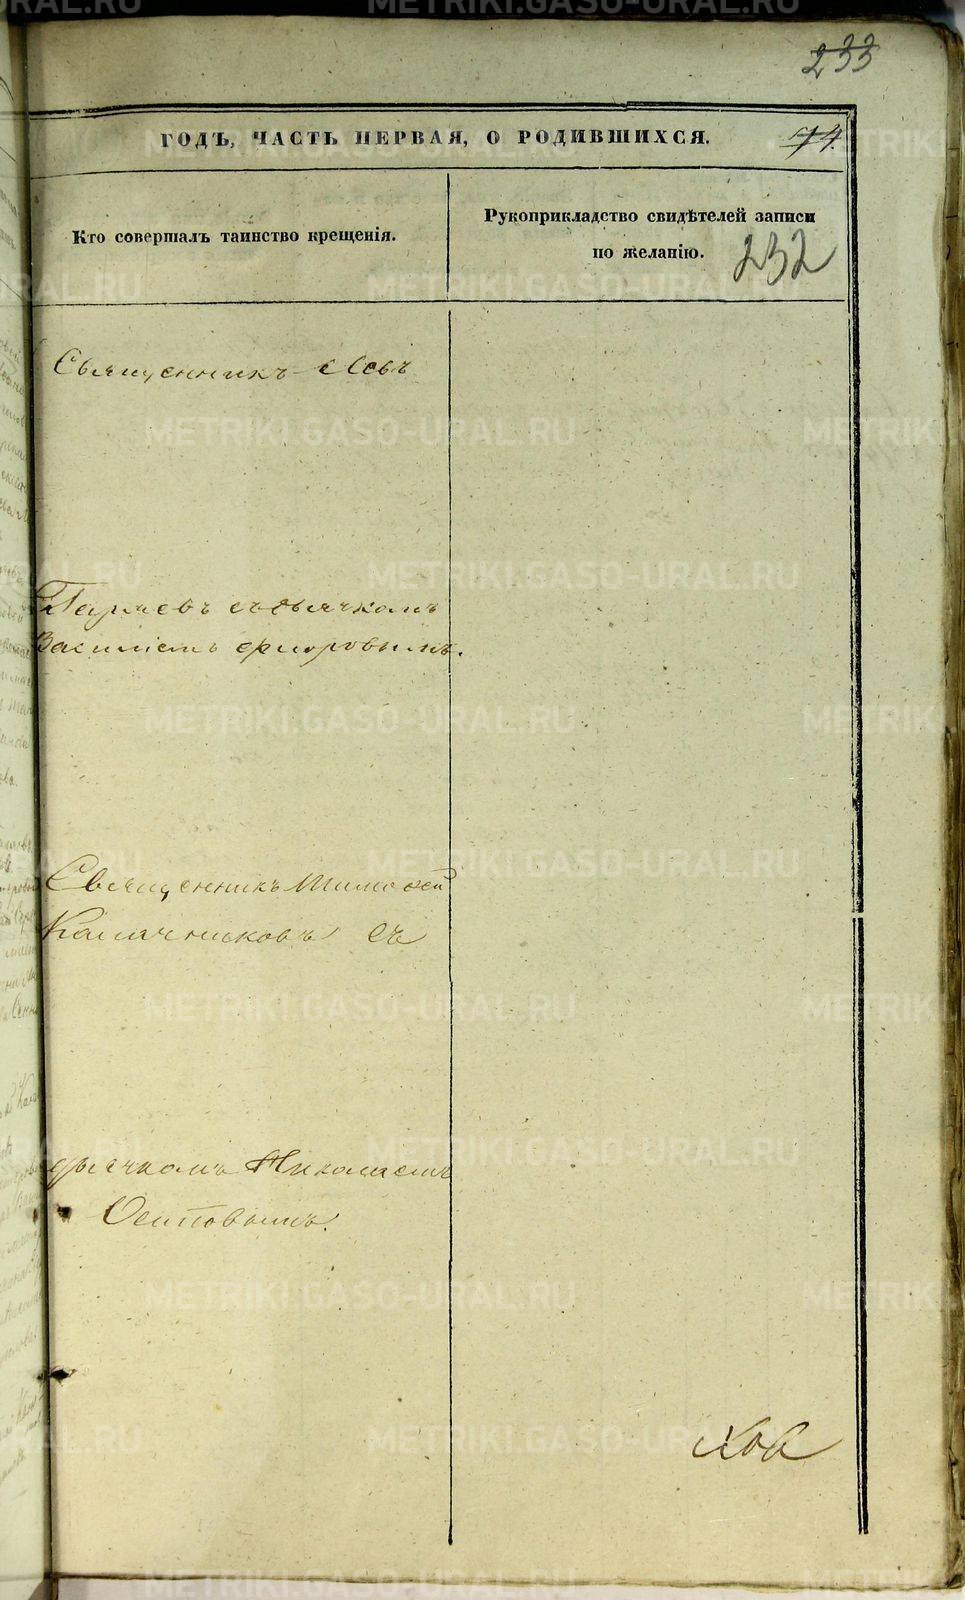 233
ГОДЪ, ЧАСТЬ ПЕРВАЯ, О РОДИВШИХСЯ. 74.
Кто совершалъ таинство крещенія.
Рукоприкладство свидѣтелей записи
по желанію. 232
Священникъ Левъ
Гаряевъ съ дьячкомъ
Василіемъ Флоровымъ.
Священникъ Тимоѳей
Калачниковъ съ
дьячкомъ Николаемъ
Осиповымъ.
METRIKI.GASO-URAL.RU